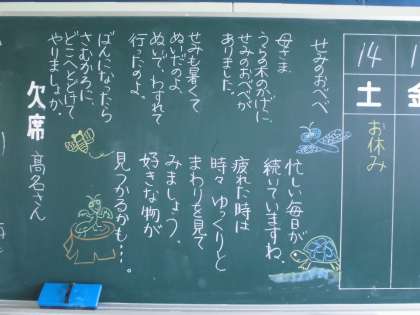 14
土
お休み
せみのおべべ
母さま、
うらの木のかげに、
せみのおべべが
ありました。
せみも暑くて
ぬいだのよ、
ぬいで、わすれて
行ったのよ。
ばんになったら
さむかろに、
どこへとどけて
やりましょか。
忙しい毎日が
続いていますね。
疲れた時は
時々ゆっくりと
まわりを見て
みましょう。
好きな物が
見つかるかも…。
欠席 髙名さん